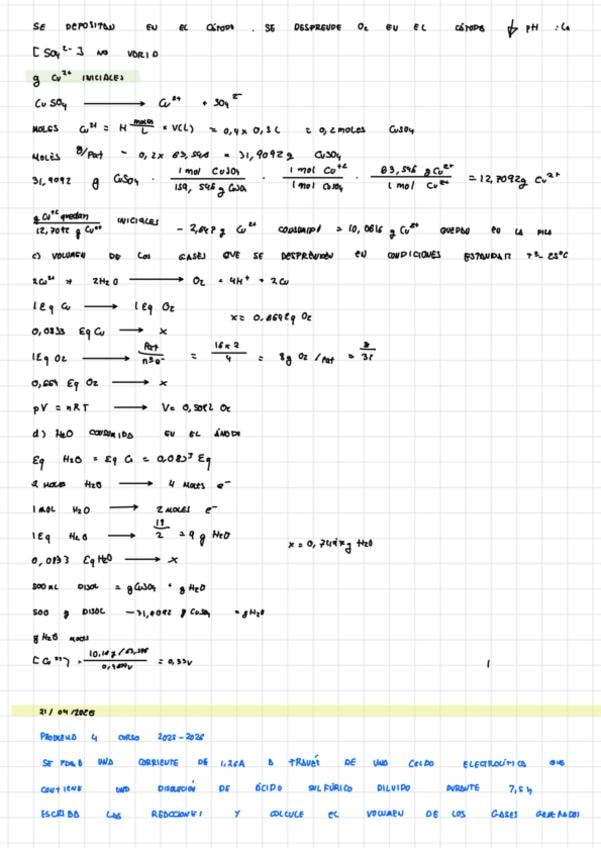 SE DEPOSITAN EN EL CÁTODO . SE DESPRENDE O₂ EN EL CÁTODO ↓ pH : La
[SO₄²⁻] NO VARIO
g Cu²⁺ INICIALES
CuSO₄ ⟶ Cu²⁺ + SO₄⁼
MOLES Cu²⁺ = M moles/L × V(L) = 0,4 × 0,5L = 0,2 moles CuSO₄
31,9092 g CuSO₄ · 1 mol CuSO₄ / 159,546 g CuSO₄ · 1 mol Cu⁺² / 1 mol CuSO₄ · 63,546 g Cu²⁺ / 1 mol Cu²⁺ = 12,7092 g Cu²⁺
g Cu⁺² quedan
12,7092 g Cu²⁺ INICIALES - 2,647 g Cu²⁺ CONSUMIDO = 10,0616 g Cu²⁺ QUEDAN EN LA PILA
c) VOLUMEN DE LOS GASES QUE SE DESPRENDEN EN CONDICIONES ESTANDAR 25°C
2Cu²⁺ + 2H₂O ⟶ O₂ + 4H⁺ + 2Cu
1 Eq Cu ⟶ 1 Eq O₂
0,0833 Eq Cu ⟶ x
1Eq O₂ ⟶ Pat / nºe⁻ = 16 × 2 / 4 = 8g O₂ / Pat
Eq O₂ ⟶ x
pV = nRT ⟶ V = O₂
d) H₂O CONSUMIDA EN EL ÁNODO
Eq H₂O = Eq Cu = 0,0833 Eq
2 MOLES H₂O ⟶ 4 MOLES e⁻
1 MOL H₂O ⟶ 2 MOLES e⁻
1Eq H₂O ⟶ 18/2 = 9 g H₂O
x = 0,7497 g H₂O
0,0833 Eq H₂O ⟶ x
500 mL DISOL = g CuSO₄ + g H₂O
500 g DISOL - 31,9092 g CuSO₄ = g H₂O
g H₂O
[Cu²⁺] =
21/04/2026
PROBLEMA 4 CURSO 2025-2026
SE PASA UNA CORRIENTE DE 1,26A A TRAVÉS DE UNA CELDA ELECTROLÍTICA QUE
CONTIENE UNA DISOLUCIÓN DE ÁCIDO SULFÚRICO DILUIDO DURANTE 7,5 h
ESCRIBA LAS REACCIONES Y CALCULE EL VOLUMEN DE LOS GASES GENERADOS